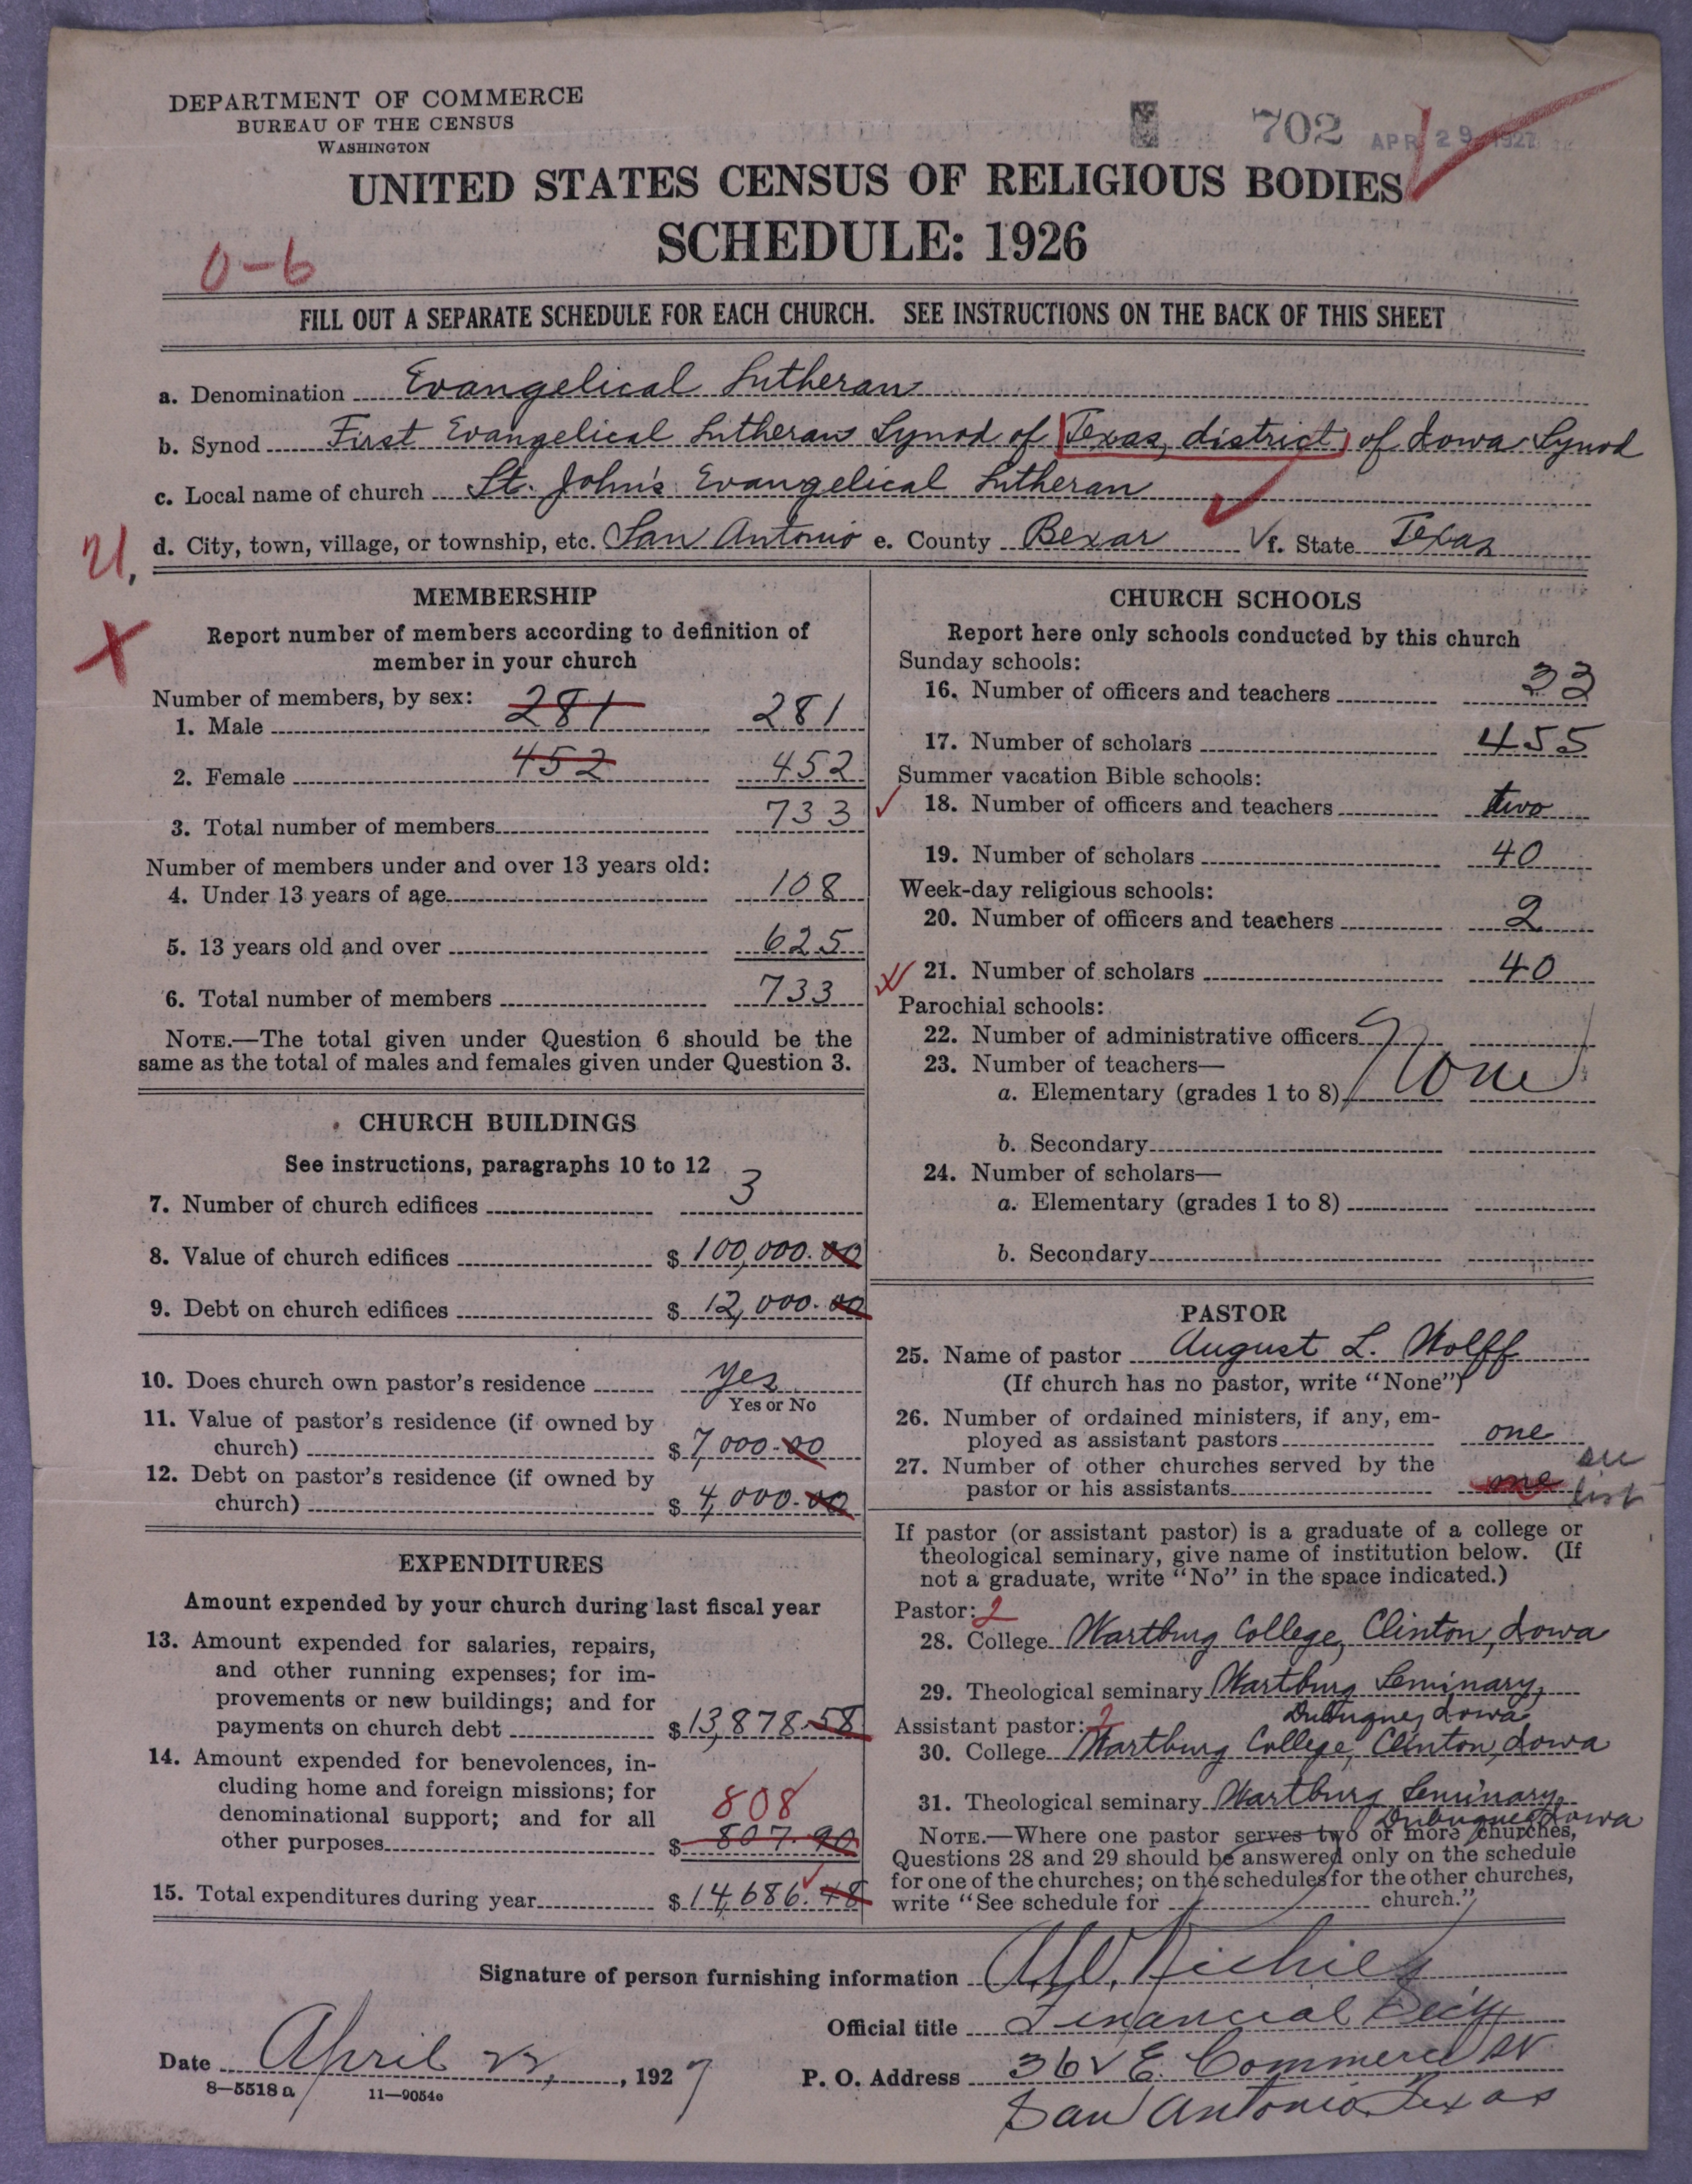 DEPARTMENT OF COMMERCE
BUREAU OF THE CENSUS
WASHINGTON
702 APR 29 1927
UNITED STATES CENSUS OF RELIGIOUS BODIES
SCHEDULE: 1926
0-6
FILL OUT A SEPARATE SCHEDULE FOR EACH CHURCH. SEE INSTRUCTIONS ON THE BACK OF THIS SHEET
a. Denomination Evangelical Lutheran
b. Synod First Evangelical Lutheran Synod of Texas, district of Iowa Synod
c. Local name of church St. John's Evangelical Lutheran
d. City, town, village, or township, etc. San Antonio e. County Bexar f. State Texas
MEMBERSHIP
Report number of members according to definition of
member in your church
Number of members, by sex:
1. Male 281 281
2. Female 452 452
3. Total number of members 733
Number of members under and over 13 years old:
4. Under 13 years of age 108
5. 13 years old and over 625
6. Total number of members 733
NOTE.—The total given under Question 6 should be the
same as the total of males and females given under Question 3.
CHURCH BUILDINGS
See instructions, paragraphs 10 to 12
7. Number of church edifices 3
8. Value of church edifices $ 100,000.00
9. Debt on church edifices $ 12,000.00
10. Does church own pastor's residence yes
Yes or No
11. Value of pastor's residence (if owned by
church) $ 7,000.00
12. Debt on pastor's residence (if owned by
church) $ 4,000.00
EXPENDITURES
Amount expended by your church during last fiscal year
13. Amount expended for salaries, repairs,
and other running expenses; for im-
provements or new buildings; and for
payments on church debt $ 13,878.58
14. Amount expended for benevolences, in-
cluding home and foreign missions; for
denominational support; and for all 808
other purposes $ 807.90
15. Total expenditures during year $ 14,686.48
CHURCH SCHOOLS
Report here only schools conducted by this church
Sunday schools:
16. Number of officers and teachers 33
17. Number of scholars 455
Summer vacation Bible schools:
18. Number of officers and teachers two
19. Number of scholars 40
Week-day religious schools:
20. Number of officers and teachers 2
21. Number of scholars 40
Parochial schools:
22. Number of administrative officers
23. Number of teachers—
a. Elementary (grades 1 to 8) None
b. Secondary
24. Number of scholars—
a. Elementary (grades 1 to 8)
b. Secondary
PASTOR
25. Name of pastor August L. Wolff
(If church has no pastor, write "None")
26. Number of ordained ministers, if any, em-
ployed as assistant pastors one
27. Number of other churches served by the
pastor or his assistants one list
If pastor (or assistant pastor) is a graduate of a college or
theological seminary, give name of institution below. (If
not a graduate, write "No" in the space indicated.)
Pastor: 2
28. College Wartburg College, Clinton, Iowa
29. Theological seminary Wartburg Seminary,
Dubuque, Iowa
Assistant pastor: 2
30. College Wartburg College, Clinton, Iowa
31. Theological seminary Wartburg Seminary,
Dubuque Iowa
NOTE.—Where one pastor serves two or more churches,
Questions 28 and 29 should be answered only on the schedule
for one of the churches; on the schedules for the other churches,
write "See schedule for church."
Signature of person furnishing information
Official title Financial Sec'y
Date April 22, 1927
P. O. Address 362 E. Commerce St.
San Antonio Texas
8—5518 a 11—9054c